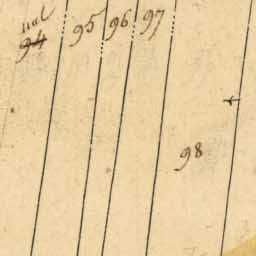 nul
94 95 96 97
98